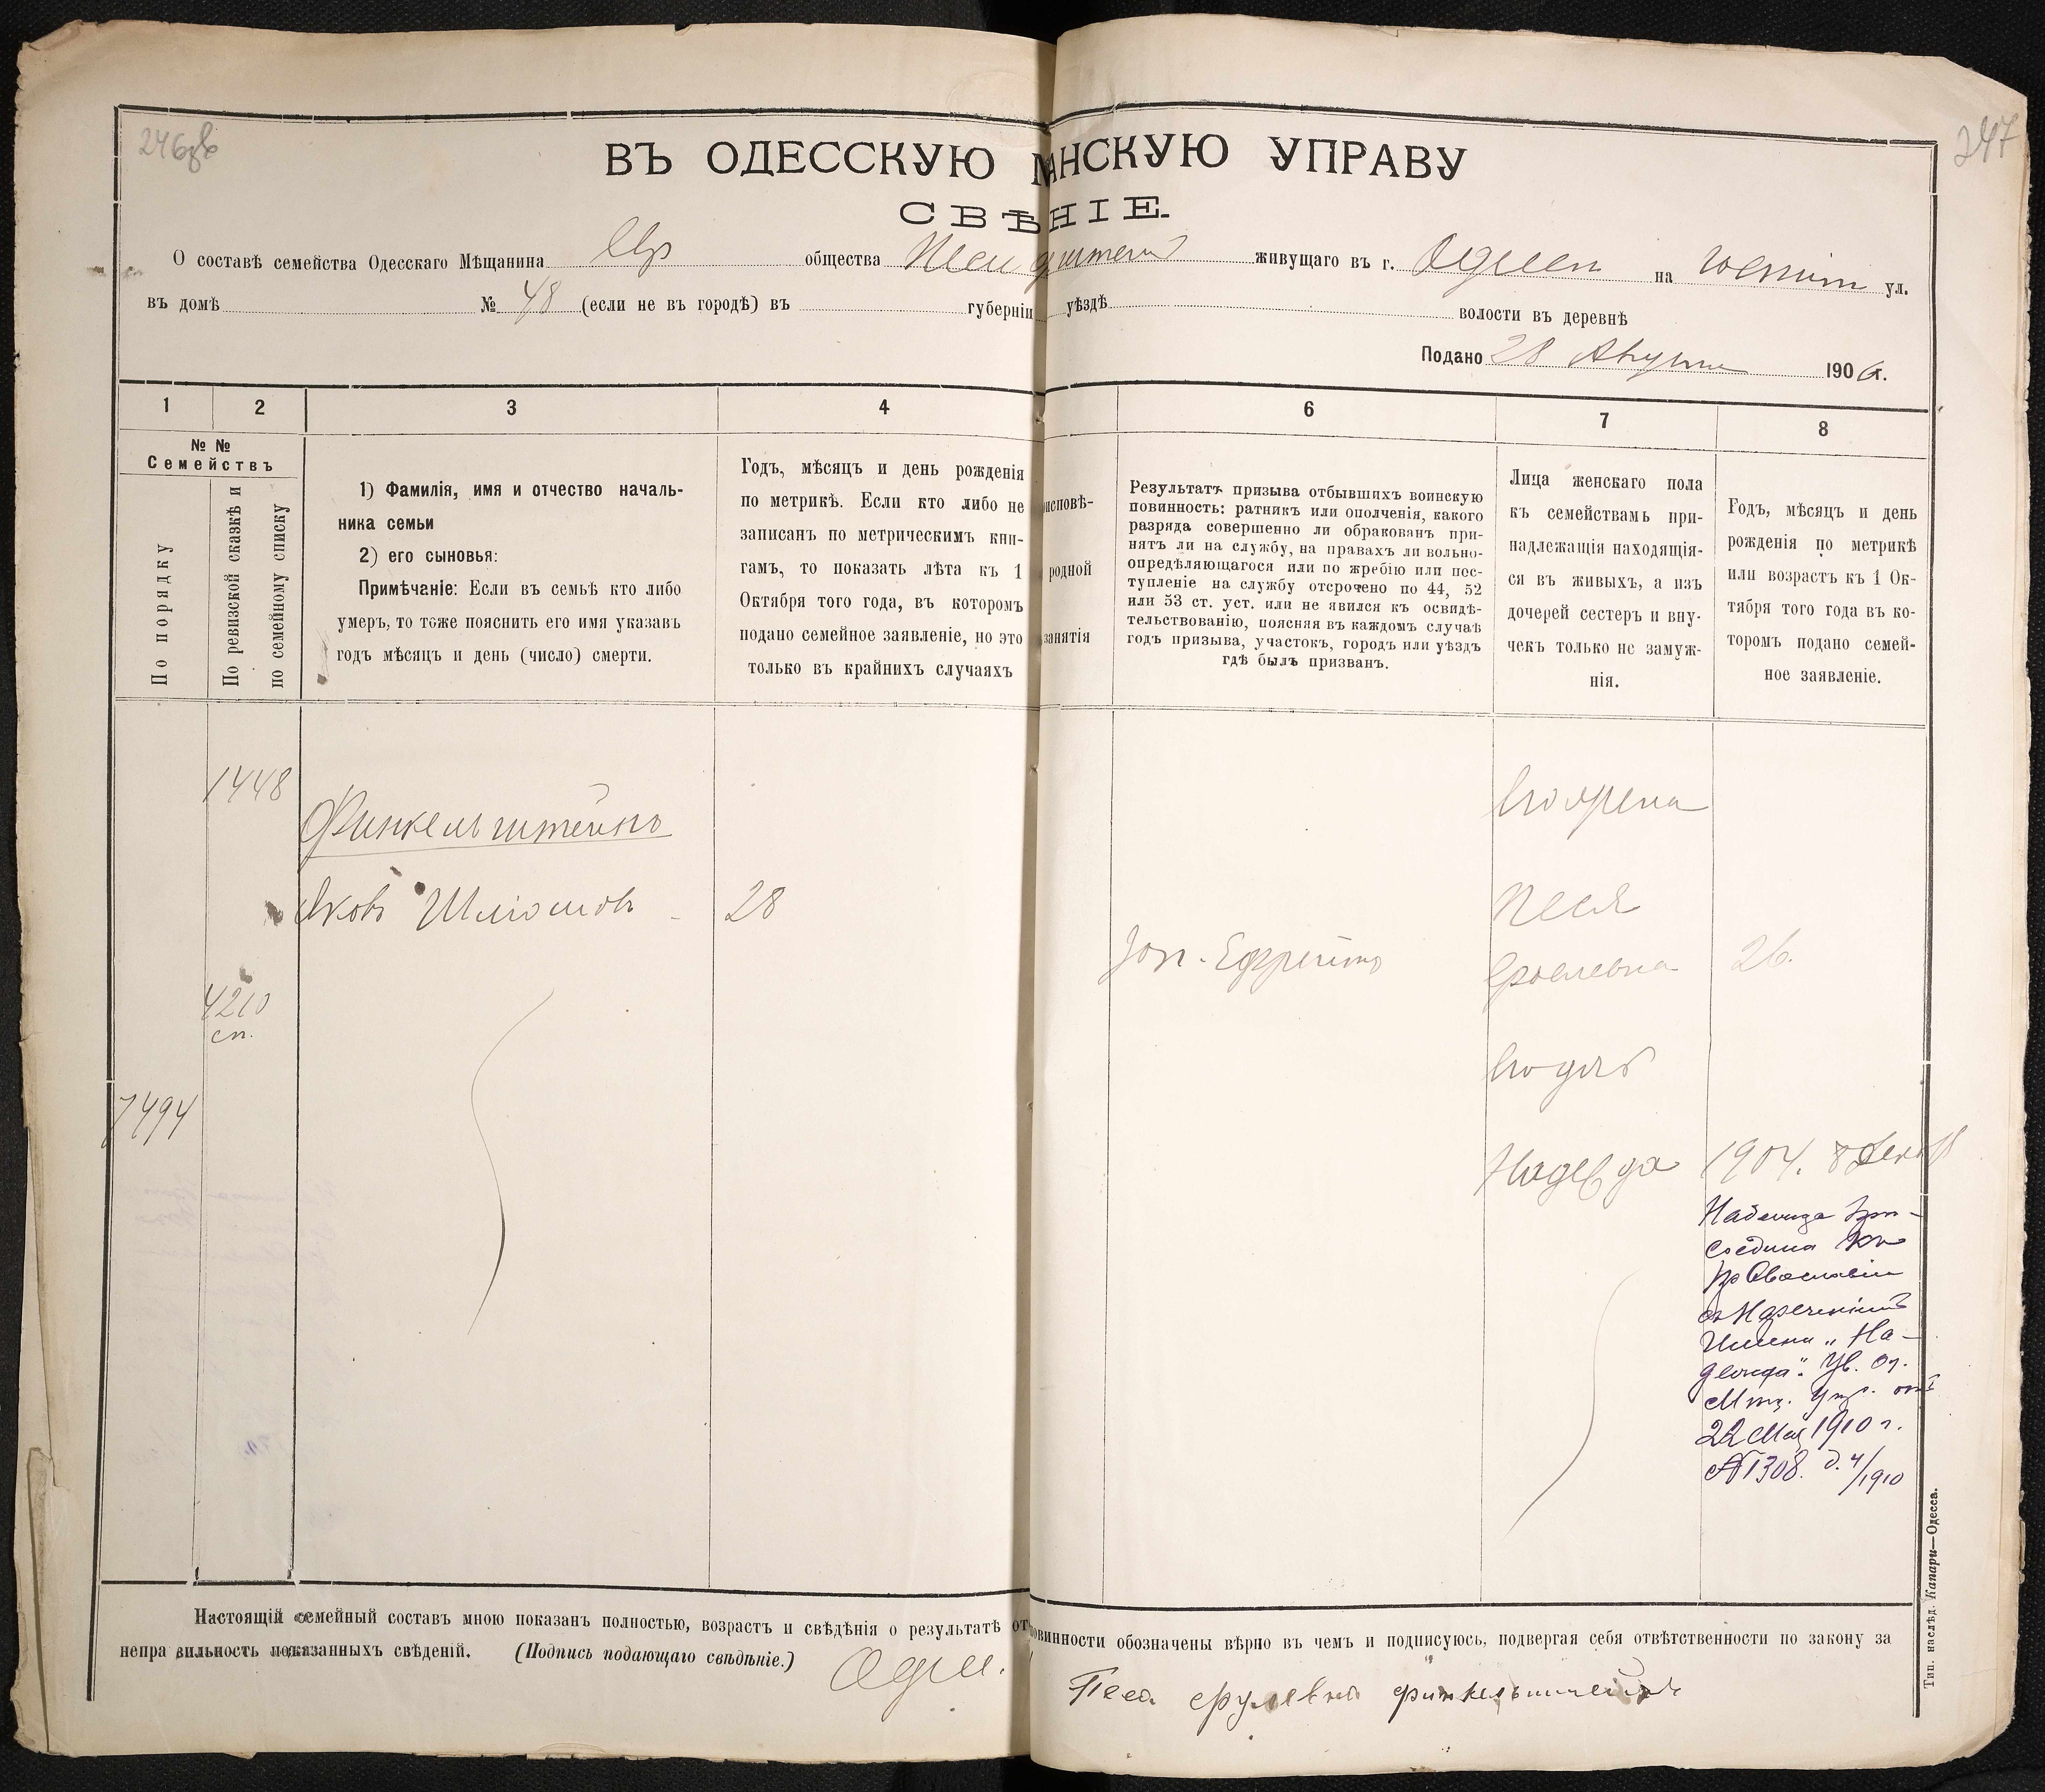 246об
247
ВЪ ОДЕССКУЮ М АНСКУЮ УПРАВУ
СВѢ НІЕ.
О составѣ семейства Одесскаго Мѣщанина Евр общества живущаго въ г. Одессѣ на ул.
въ домѣ № 48 (если не въ городѣ) въ губерніи уѣздѣ волости въ деревнѣ
Подано 28 Августа 1906 г.
1 2 3 4 6 7 8
№ №
Семействъ
По порядку
По ревизской сказкѣ и
по семейному списку
1) Фамилія, имя и отчество началь-
ника семьи
2) его сыновья:
Примѣчаніе: Если въ семьѣ кто либо
умеръ, то тоже пояснить его имя указавъ
годъ мѣсяцъ и день (число) смерти.
Годъ, мѣсяцъ и день рожденія
по метрикѣ. Если кто либо не
записанъ по метрическимъ кни-
гамъ, то показать лѣта къ 1
Октября того года, въ которомъ
подано семейное заявленіе, но это
только въ крайнихъ случаяхъ
исповѣ-
родной
занятія
Результатъ призыва отбывшихъ воинскую
повинность: ратникъ или ополченія, какого
разряда совершенно ли обракованъ при-
нятъ ли на службу, на правахъ ли вольно-
опредѣляющагося или по жребію или пос-
тупленіе на службу отсрочено по 44, 52
или 53 ст. уст. или не явился къ освидѣ-
тельствованію, поясняя въ каждомъ случаѣ
годъ призыва, участокъ, городъ или уѣздъ
гдѣ былъ призванъ.
Лица женскаго пола
къ семействамъ при-
надлежащія находящія-
ся въ живыхъ, а изъ
дочерей сестеръ и вну-
чекъ только не замуж-
нія.
Годъ, мѣсяцъ и день
рожденія по метрикѣ
или возрастъ къ 1 Ок-
тября того года въ ко-
торомъ подано семей-
ное заявленіе.
1448
Финкельштейнъ
Его жена
Яковъ Шліомовъ 28
Песя
Зап. Ефрейт. Сролевна 26.
4210
сп.
Его дочь
7494
Надежда 1904. 8 Декабр
Надежда при-
соедина къ
Православію
съ нареченіемъ
имени „На-
дежда". Ув. Од.
Мѣщ. Упр. отъ
22 Мая 1910 г.
№ 1308. д. 4/1910
Настоящій семейный составъ мною показанъ полностью, возрастъ и свѣдѣнія о результатѣ от овинности обозначены вѣрно въ чемъ и подписуюсь, подвергая себя отвѣтственности по закону за
неправильность показанныхъ свѣденій. (Подпись подающаго свѣдѣніе.)
Песа срулевна финкельштейнъ
Тип. наслѣд. Капари—Одесса.